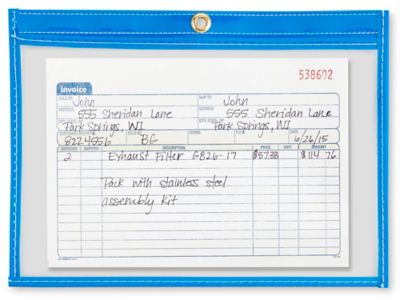 538602
Invoice
SOLD TO John SHIP TO John
ADDRESS 555 Sheridan Lane ADDRESS 555 Sheridan Lane
CITY, STATE, ZIP Park Springs, WI CITY, STATE, ZIP Park Springs, WI
8224556 BG 6/26/15
ORDERED SHIPPED DESCRIPTION PRICE UNIT AMOUNT
2 Exhaust Filter GB26-17 $57.38 $114 76
Pack with stainless steel
assembly kit